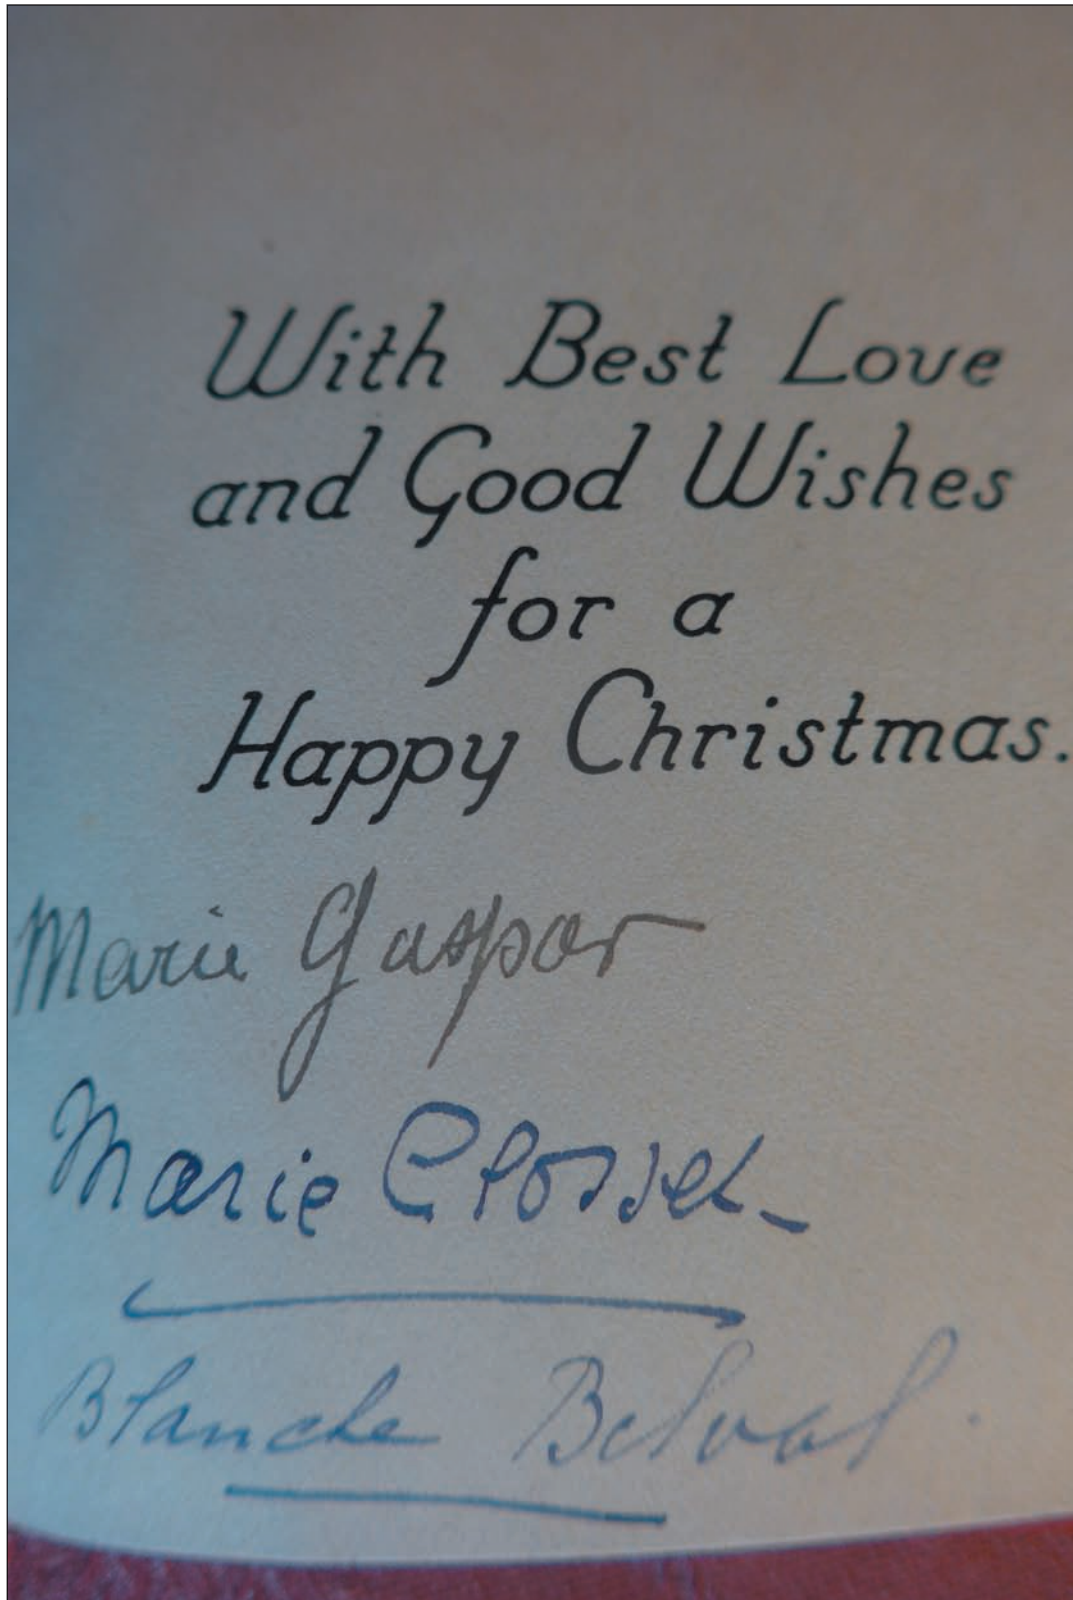 With Best Love
and Good Wishes
for a
Happy Christmas.
Marie Gaspar
Marie Closset
Blanche Belval.